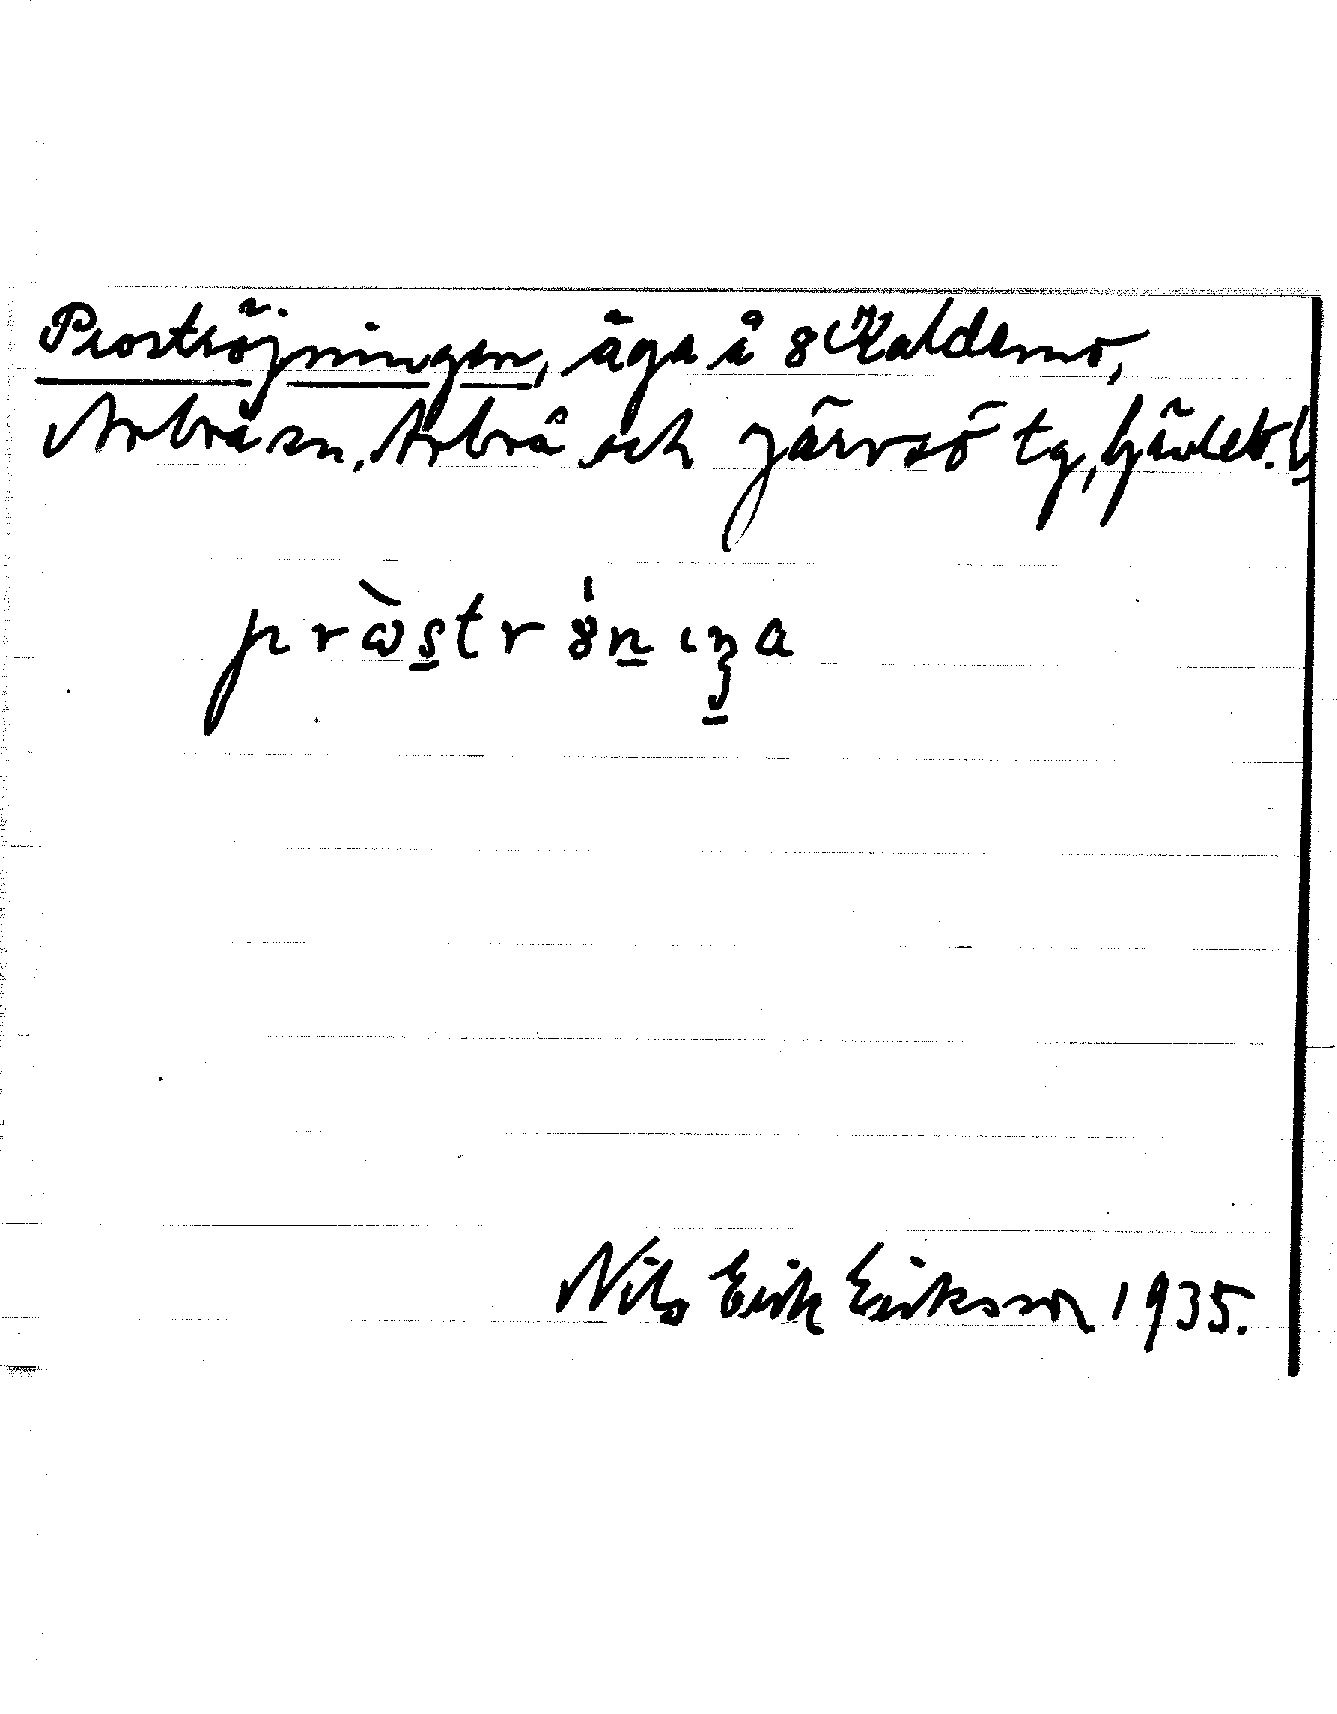 Proströjningen, äga å 8 Koldemo,
Arbrå sn, Arbrå och Järvsö tg, Gävleb. l
pròströnıŋa
Nils Erik Eriksson 1935.